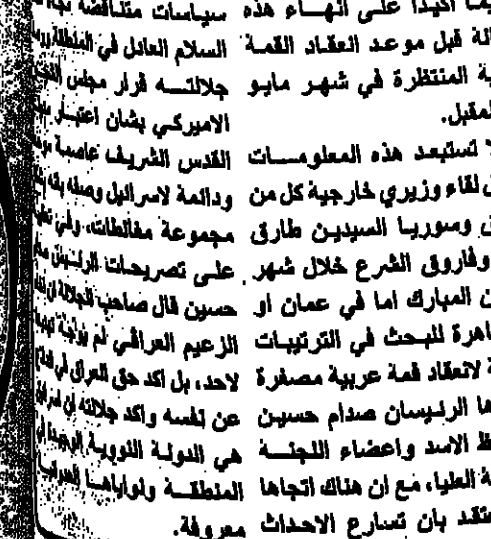 يما اكيدا على انهاء هذه
الة قبل موعد انعقاد القمة
ية المنتظرة في شهر مايو
لمقبل.
لا تستبعد هذه المعلومات
لقاء وزيري خارجية كل من
ق وسوريا السيدين طارق
وفاروق الشرع خلال شهر
ن المبارك اما في عمان او
اهرة للبحث في الترتيبات
ة لانعقاد قمة عربية مصغرة
ها الرئيسان صدام حسين
ظ الاسد واعضاء اللجنة
ة العليا، مع ان هناك اتجاها
عتقد بان تسارع الاحداث
سياسات متناقضة تجاه
السلام العادل في المنطقة
جلالته قرار مجلس
الاميركي بشان اعتبار
القدس الشريف عاصمة
ودائمة لاسرائيل وصفه بانه
مجموعة مغالطات، وفي
على تصريحات الرئيس
حسين قال صاحب الجلالة ان
الزعيم العراقي لم يوجه
لاحد، بل اكد حق العراق في
عن نفسه واكد جلالته ان
هي الدولة النووية الوحيدة
المنطقة ونواياها
معروفة.